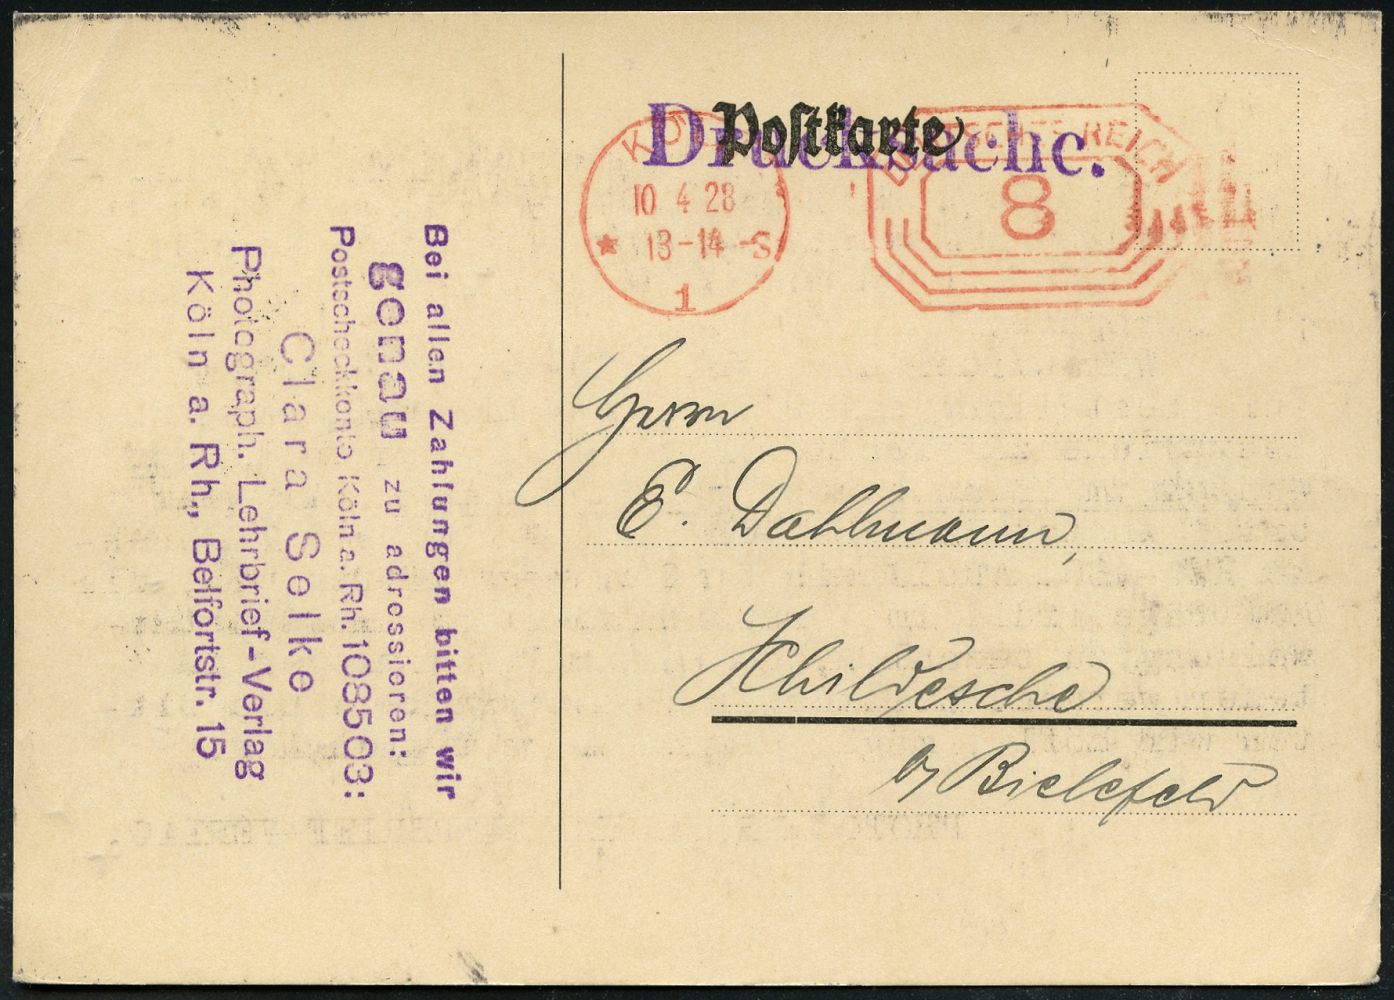 Postkarte
Drucksache.
KÖLN
10 4 28
★ 13-14 -S
1
DEUTSCHES REICH
8
Herrn
E. Dahlmann,
Schildesche
b/ Bielefeld
Bei allen Zahlungen bitten wir
genau zu adressieren:
Postscheckkonto Köln a. Rh. 108503:
Clara Selke
Photograph. Lehrbrief-Verlag
Köln a. Rh., Belfortstr. 15